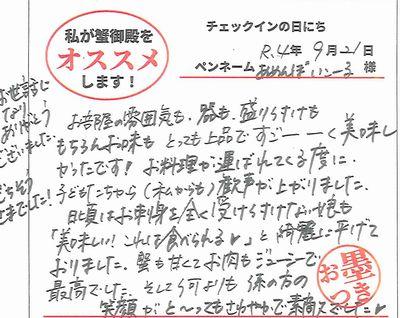 私が蟹御殿を
オススメ
します！
チェックインの日にち
R.4年 9月21日
ペンネーム あめんぼいこーる 様
お世話に
なり
ありがとう
ございました。
ごちそう
さまでした！
お部屋の雰囲気も、器も、盛りつけも
もちろんお味も とっても上品ですご――く美味し
かったです！お料理が運ばれてくる度に、
子どもたちから（私からも）歓声が上がりました。
日頃はお刺身を全く受けつけない娘も
「美味しい！これは食べられる♪」と綺麗に平げて
おりました。蟹も甘くてお肉もジューシーで
最高でした。そして何よりも 係の方の
笑顔がと〜ってもさわやかで素敵でした♪
お墨つき